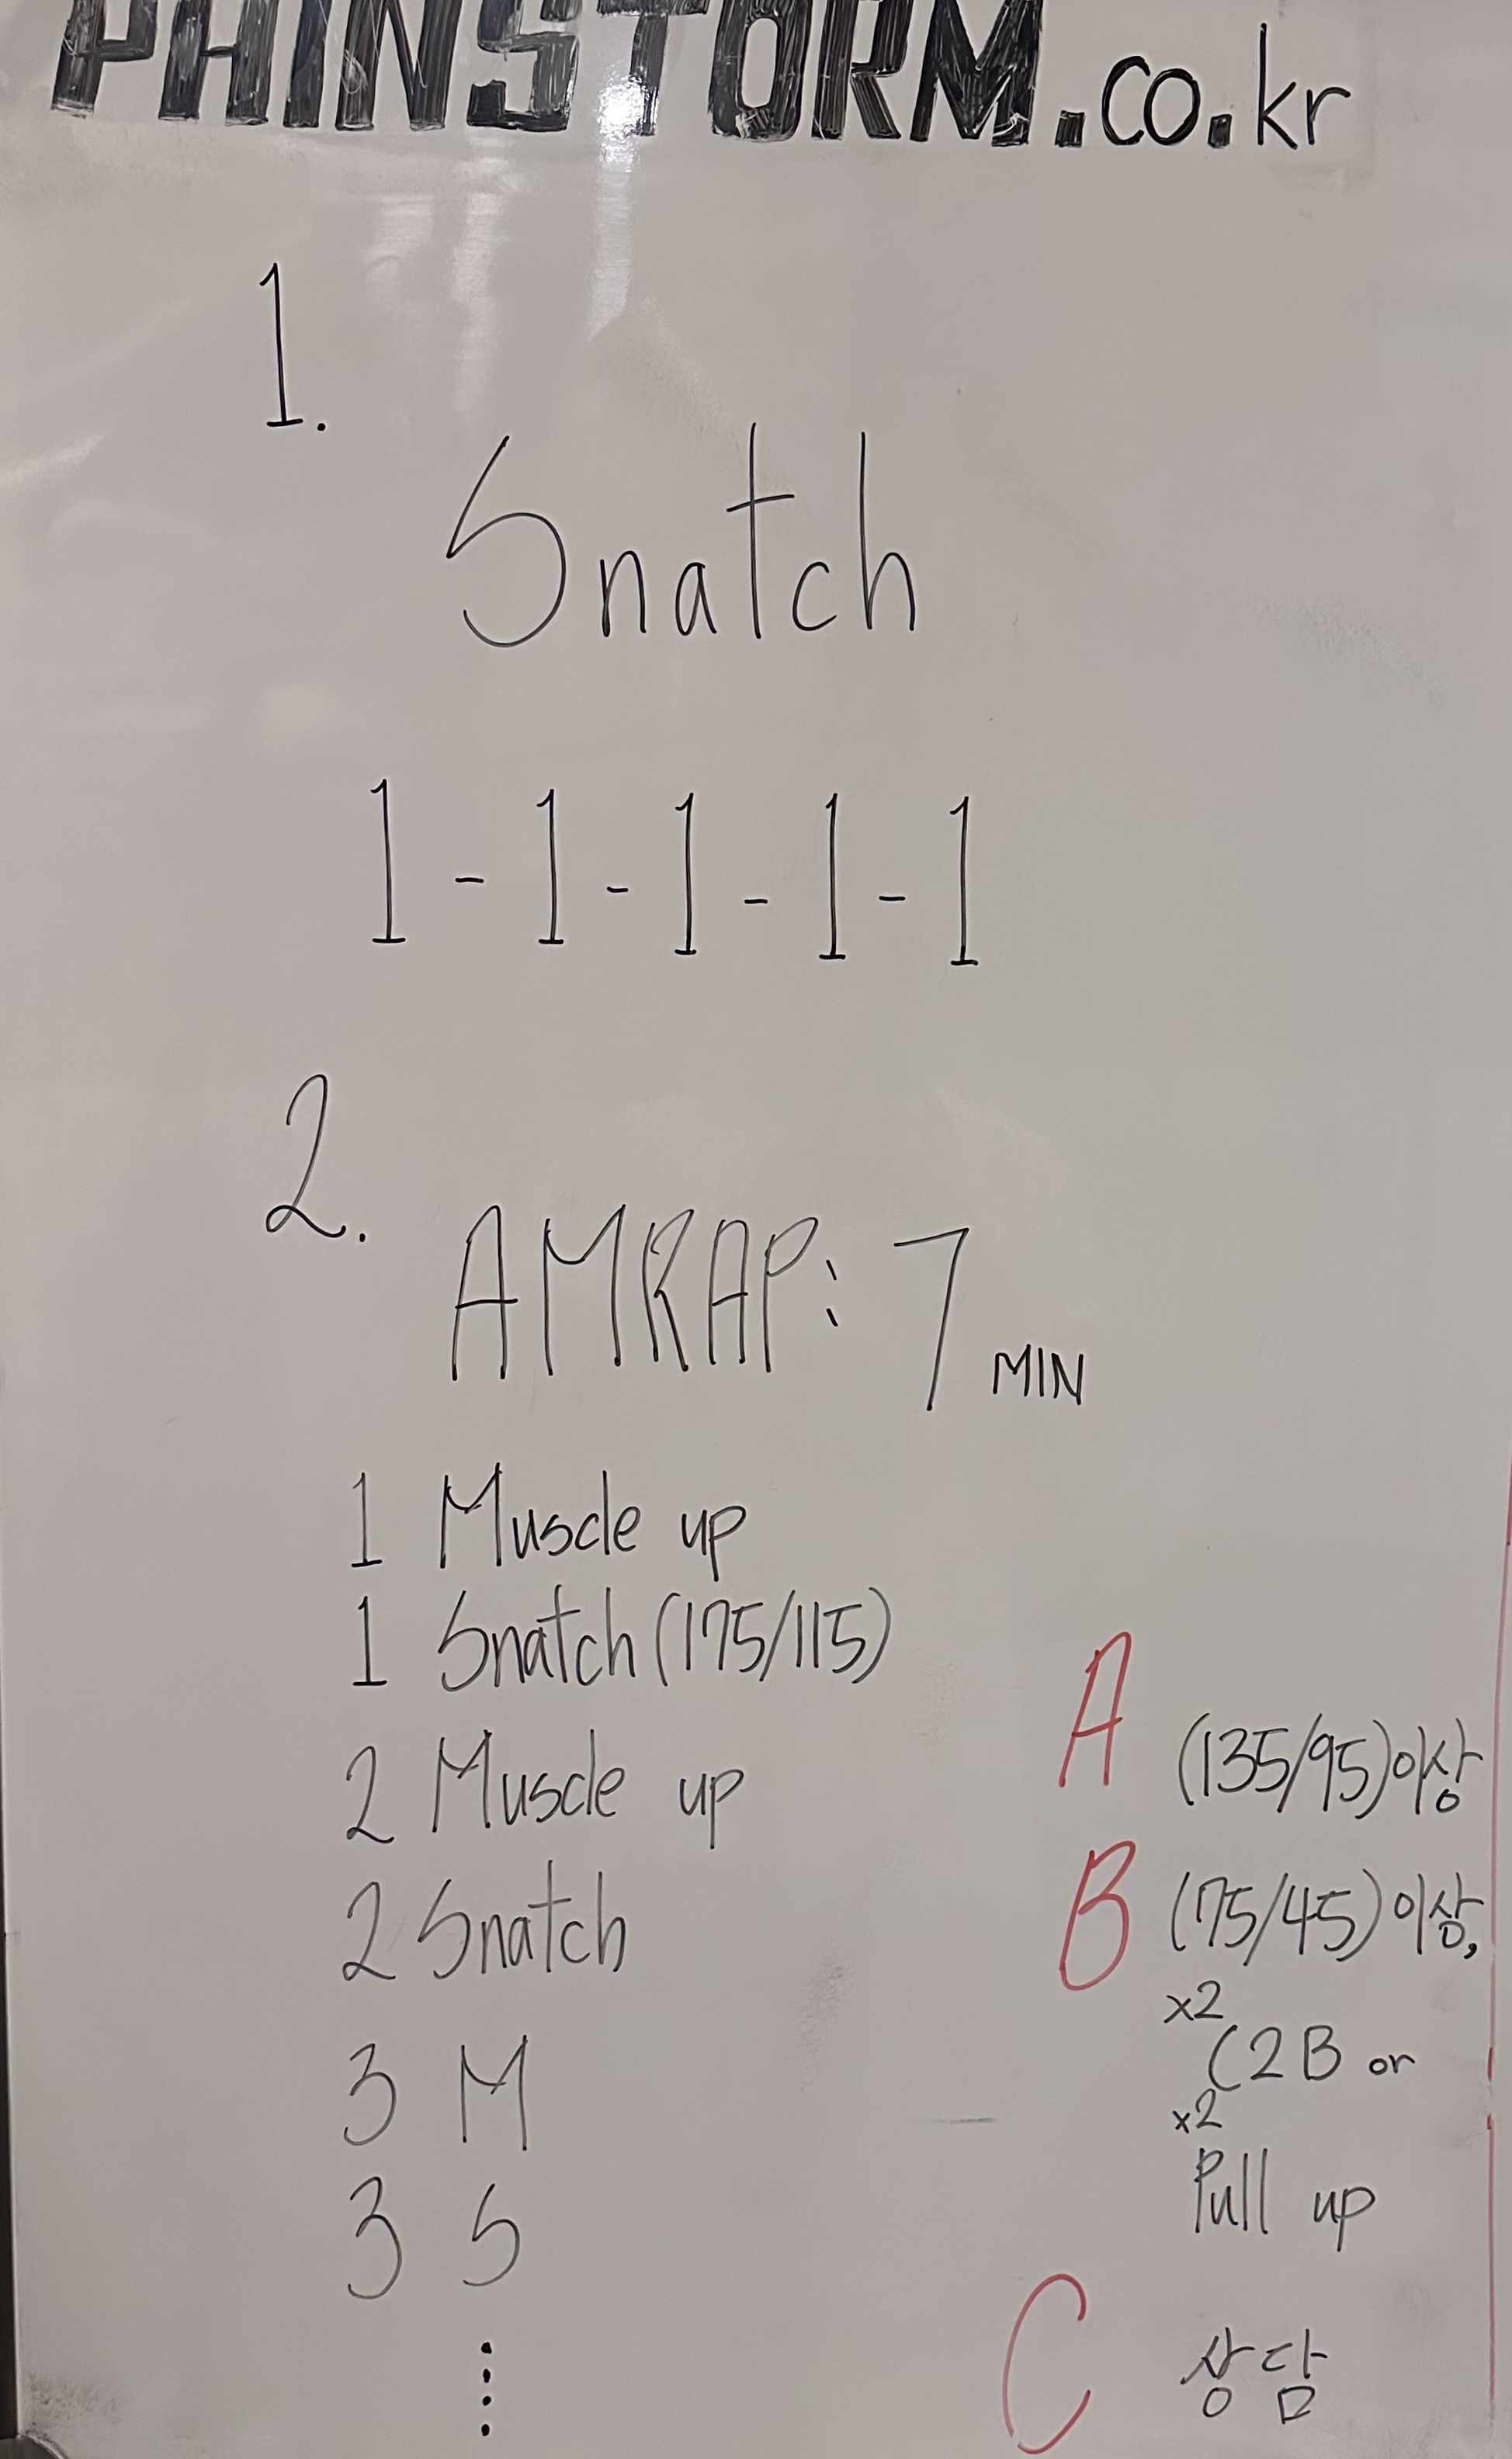 PAINSTORM.co.kr
1.
Snatch
1-1-1-1-1
2.
AMRAP: 7 MIN
1 Muscle up
1 Snatch (175/115)
2 Muscle up
2 Snatch
3 M
3 S
⋮
A (135/95)이상
B (75/45)이상,
x2
C2B or
x2
Pull up
C 상담